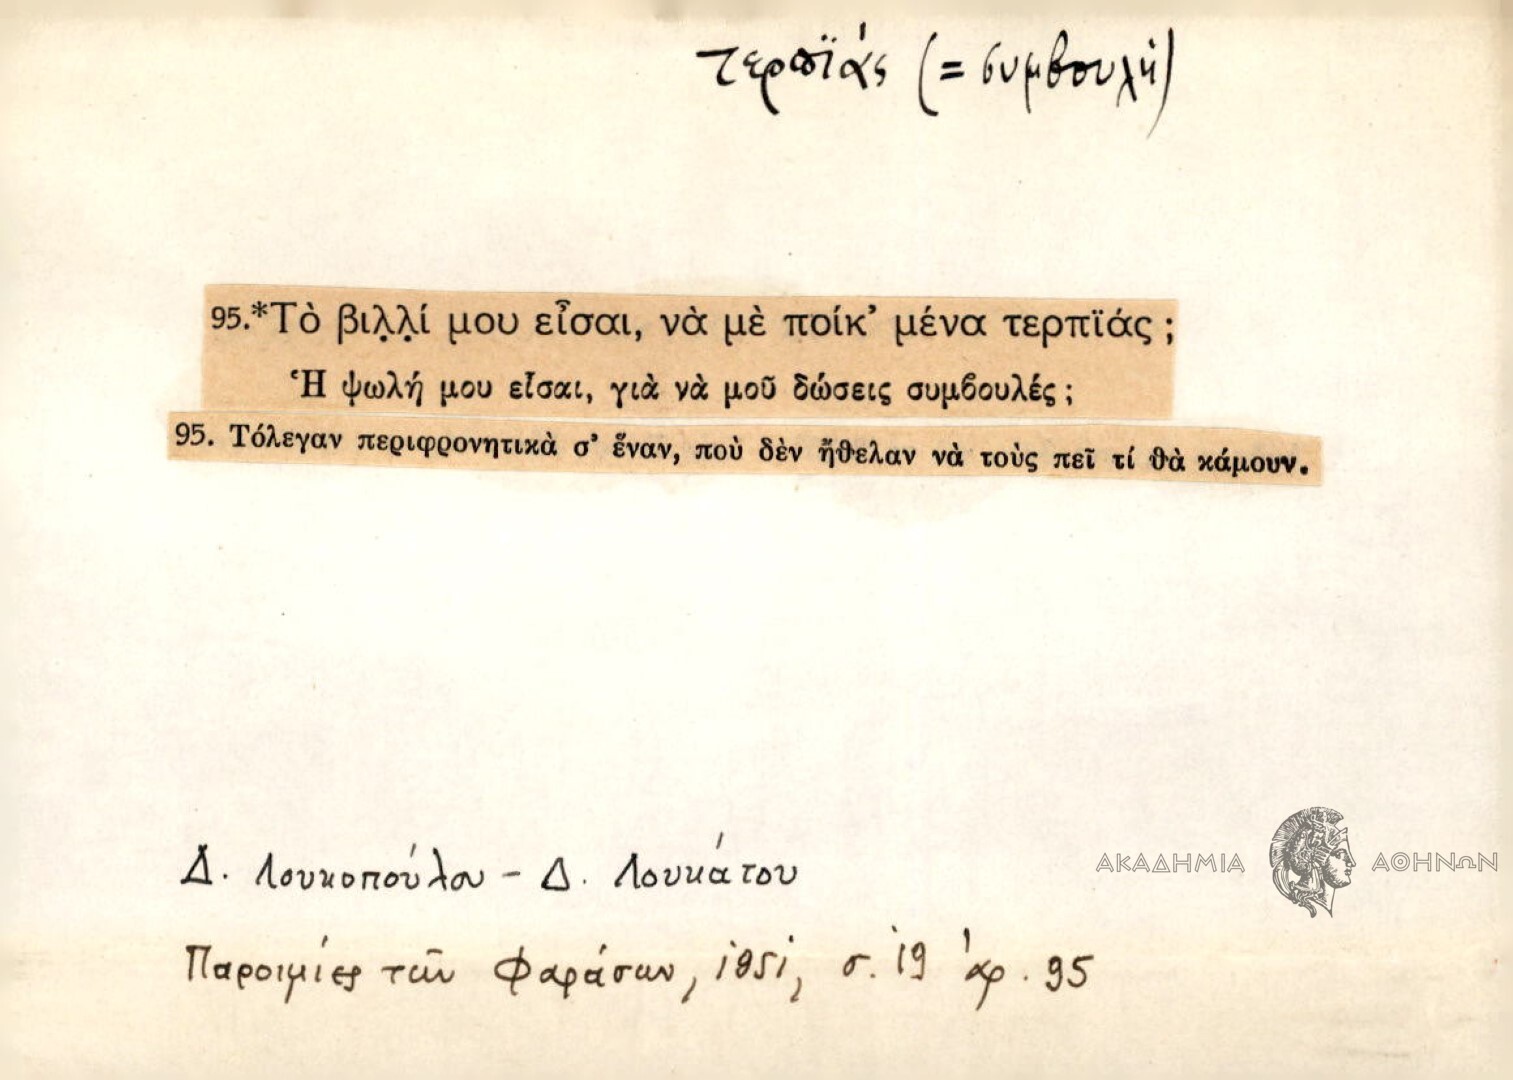 τερπϊάς (= συμβουλή)
95.*Τὸ βιλ̣λ̣ί μου εἶσαι, νὰ μὲ ποίκ’ μένα τερπϊάς ;
Ἡ ψωλή μου εἶσαι, γιὰ νὰ μοῦ δώσεις συμβουλές ;
95. Τόλεγαν περιφρονητικὰ σ’ ἕναν, ποὺ δὲν ἤθελαν νὰ τοὺς πεῖ τί θὰ κάμουν.
Δ. Λουκοπούλου - Δ. Λουκάτου
ΑΚΑΔΗΜΙΑ ΑΘΗΝΩΝ
Παροιμίες τῶν Φαράσων, 1951, σ. 19 ἀρ. 95